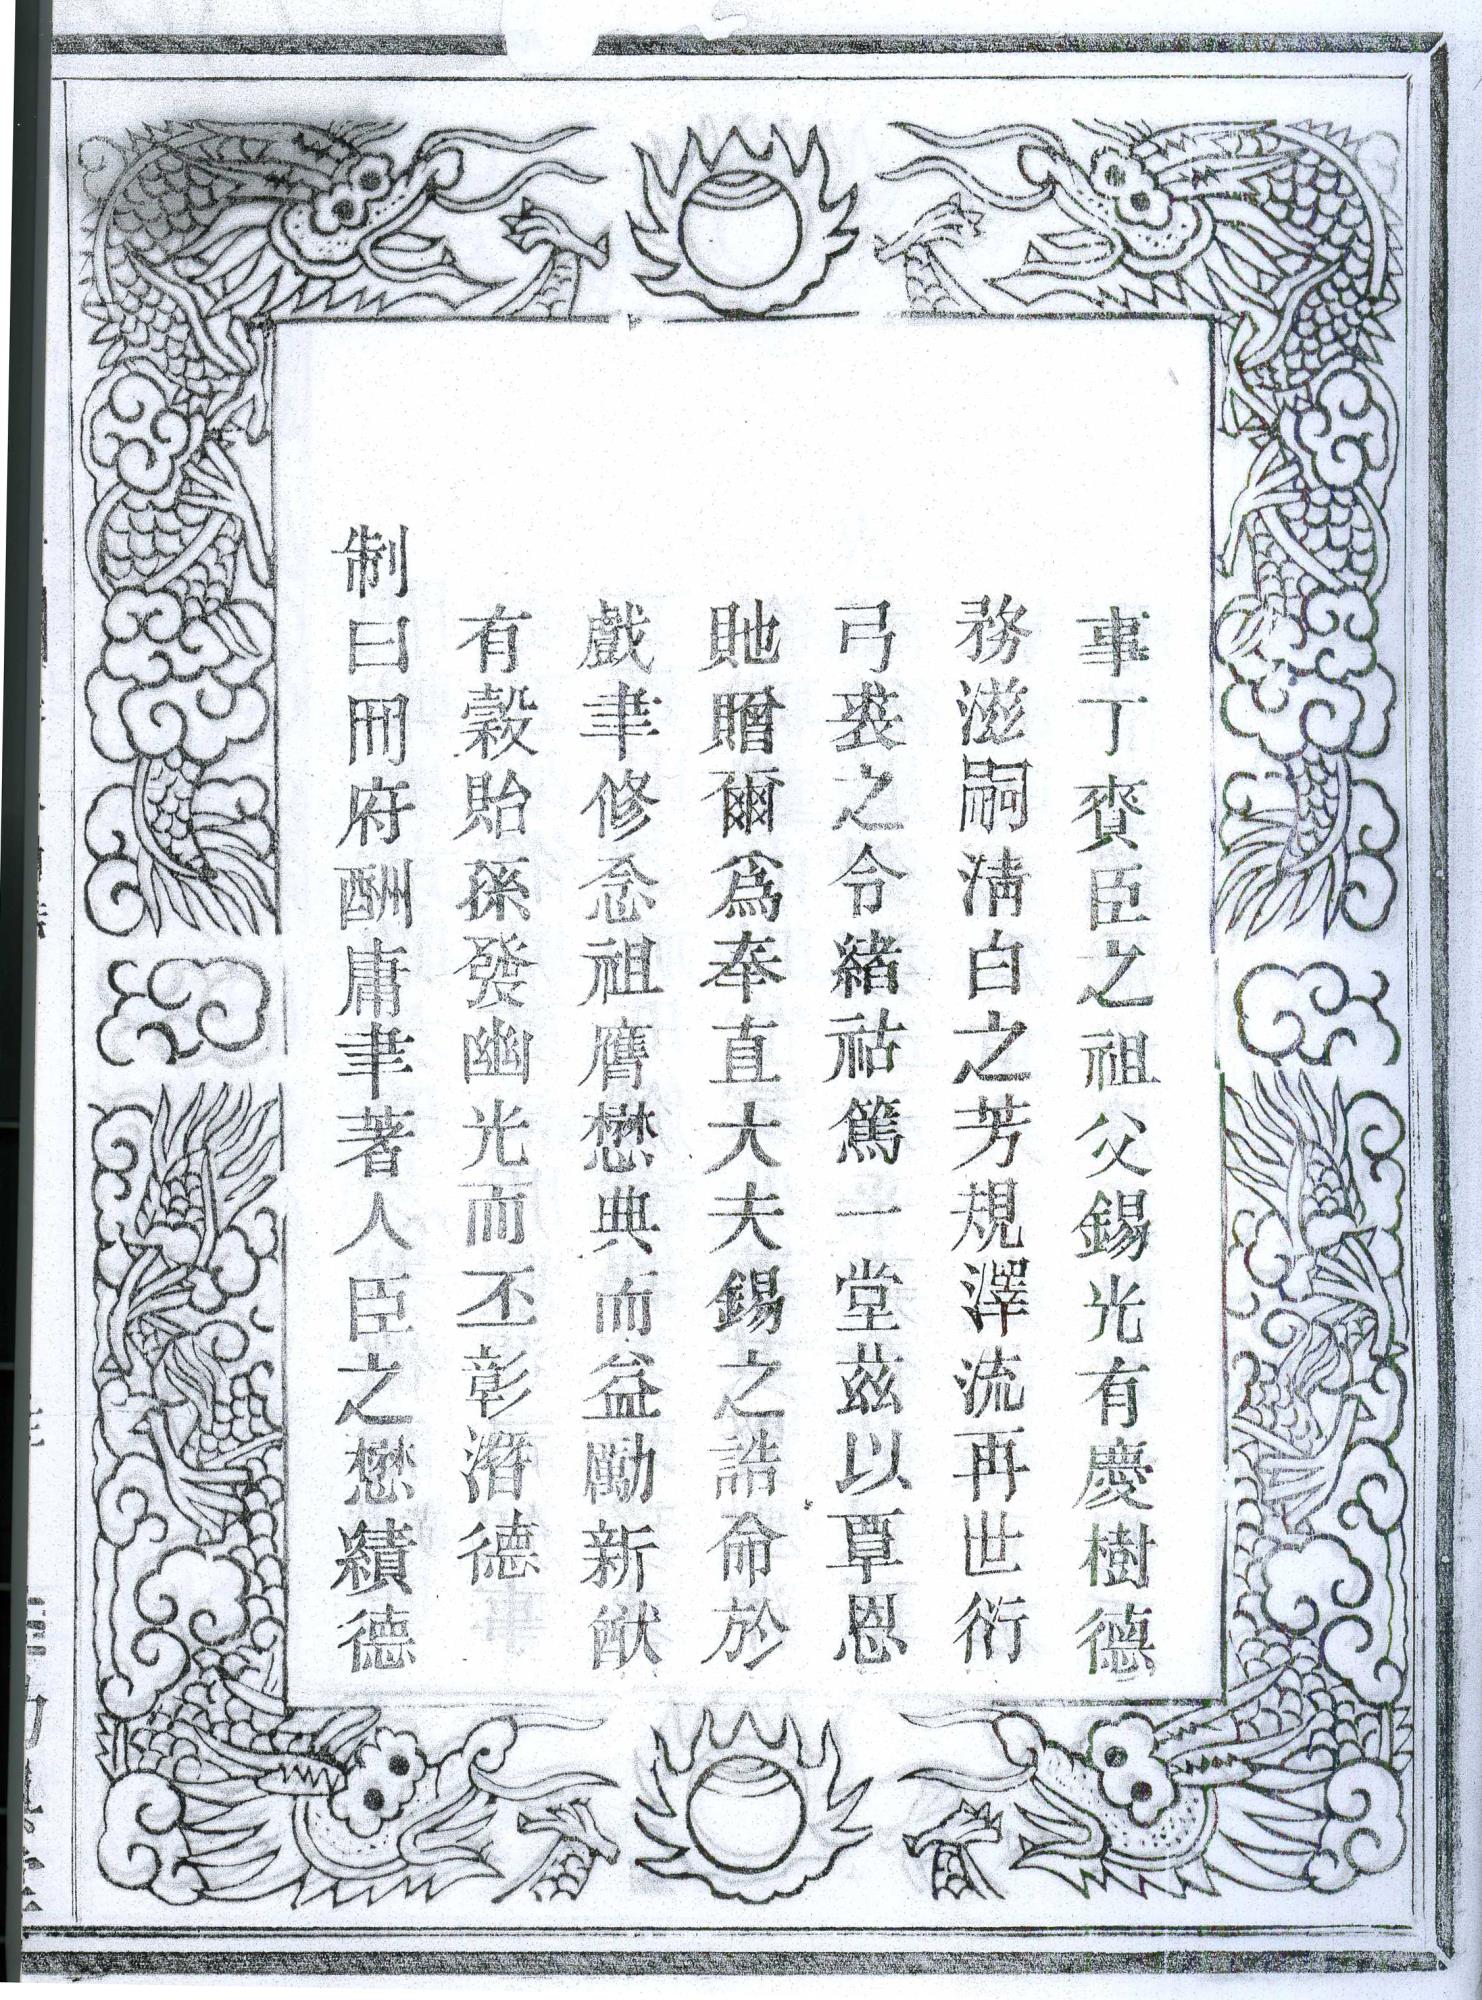 事丁賚臣之祖父錫光有慶樹德
務滋嗣淸白之芳規澤流再世衍
弓裘之令緖祜篤一堂茲以覃恩
貤贈爾爲奉直大夫錫之誥命於
戲聿修念祖膺懋典而益勵新猷
有穀貽孫發幽光而丕彰潛德
制曰冊府酬庸聿著人臣之懋績德